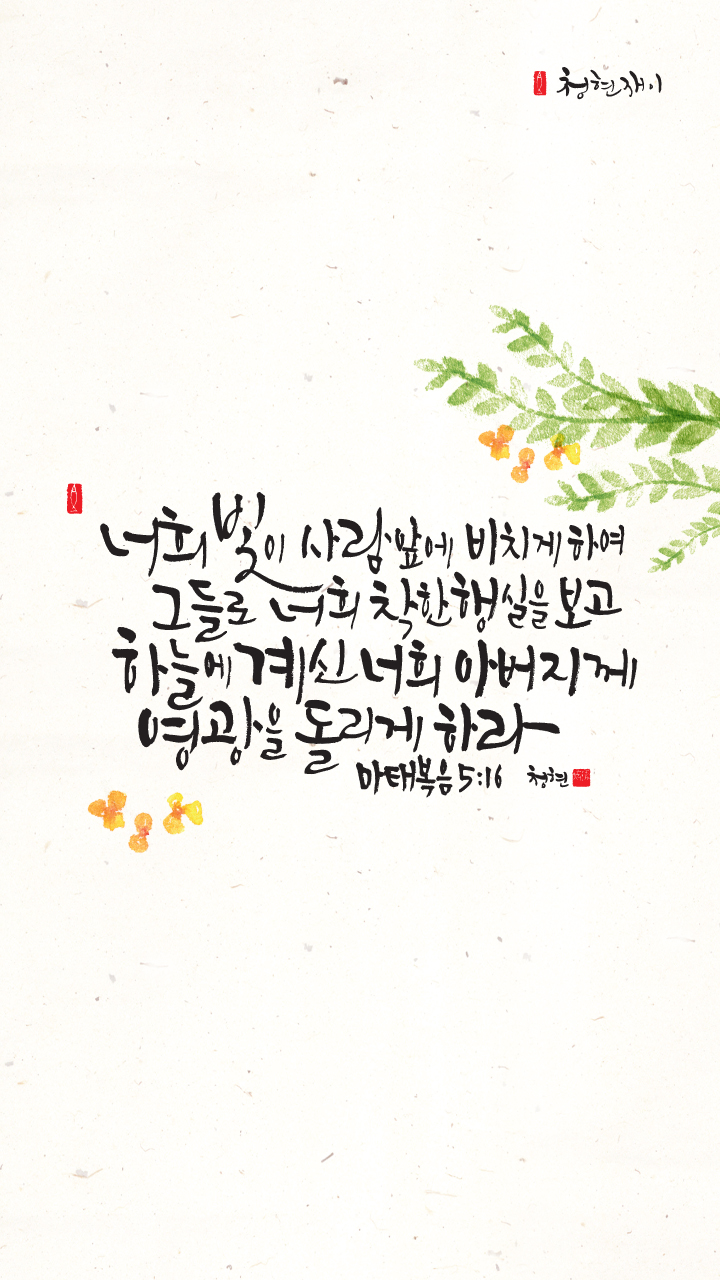 청현재이
너희 빛이 사람 앞에 비치게 하여
그들로 너희 착한 행실을 보고
하늘에 계신 너희 아버지께
영광을 돌리게 하라
마태복음 5:16 청현